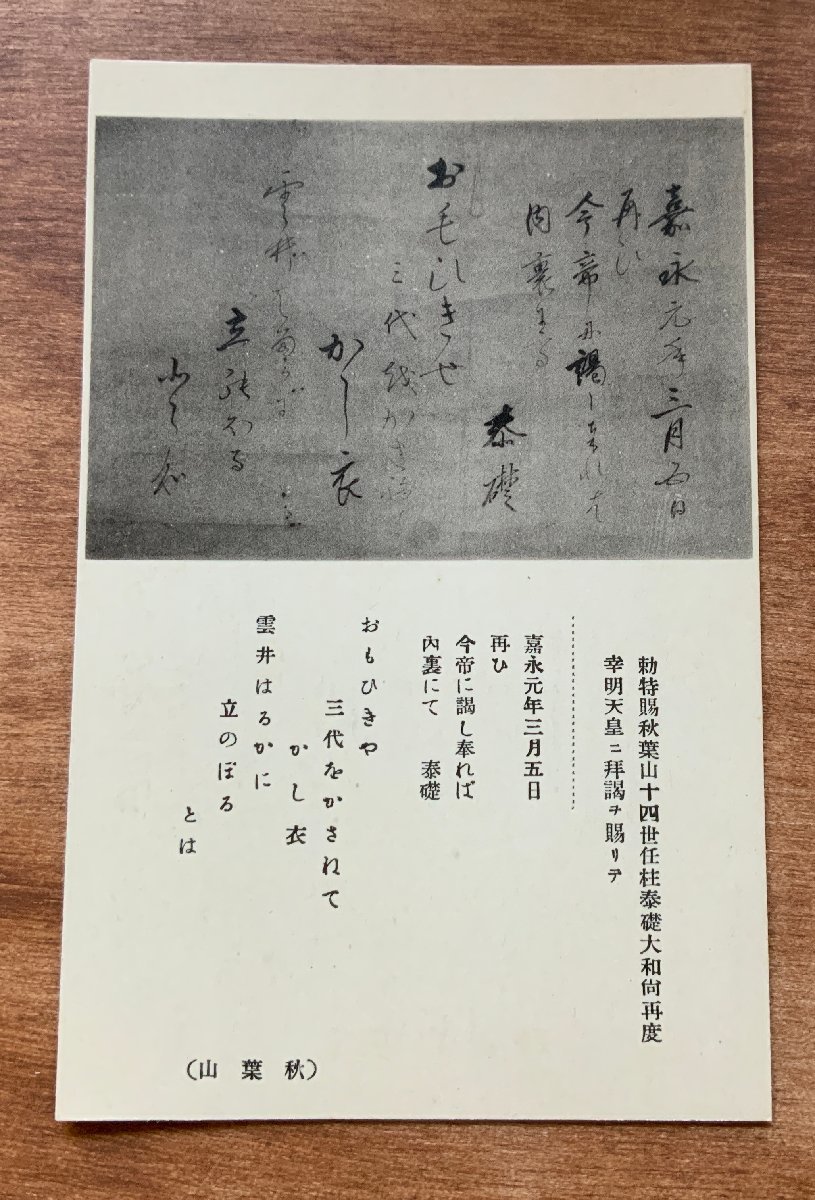 嘉永元年三月五日
再ひ
今帝に謁し奉れは
内裏にて
泰礎
お毛ひきや
三代越かさねて
かし衣
立能本る
勅特賜秋葉山十四世任柱泰礎大和尙再度
幸明天皇ニ拝謁ヲ賜リテ
嘉永元年三月五日
再ひ
今帝に謁し奉れば
內裏にて　泰礎
おもひきや
三代をかさねて
かし衣
雲井はるかに
立のぼる
とは
(秋葉山)